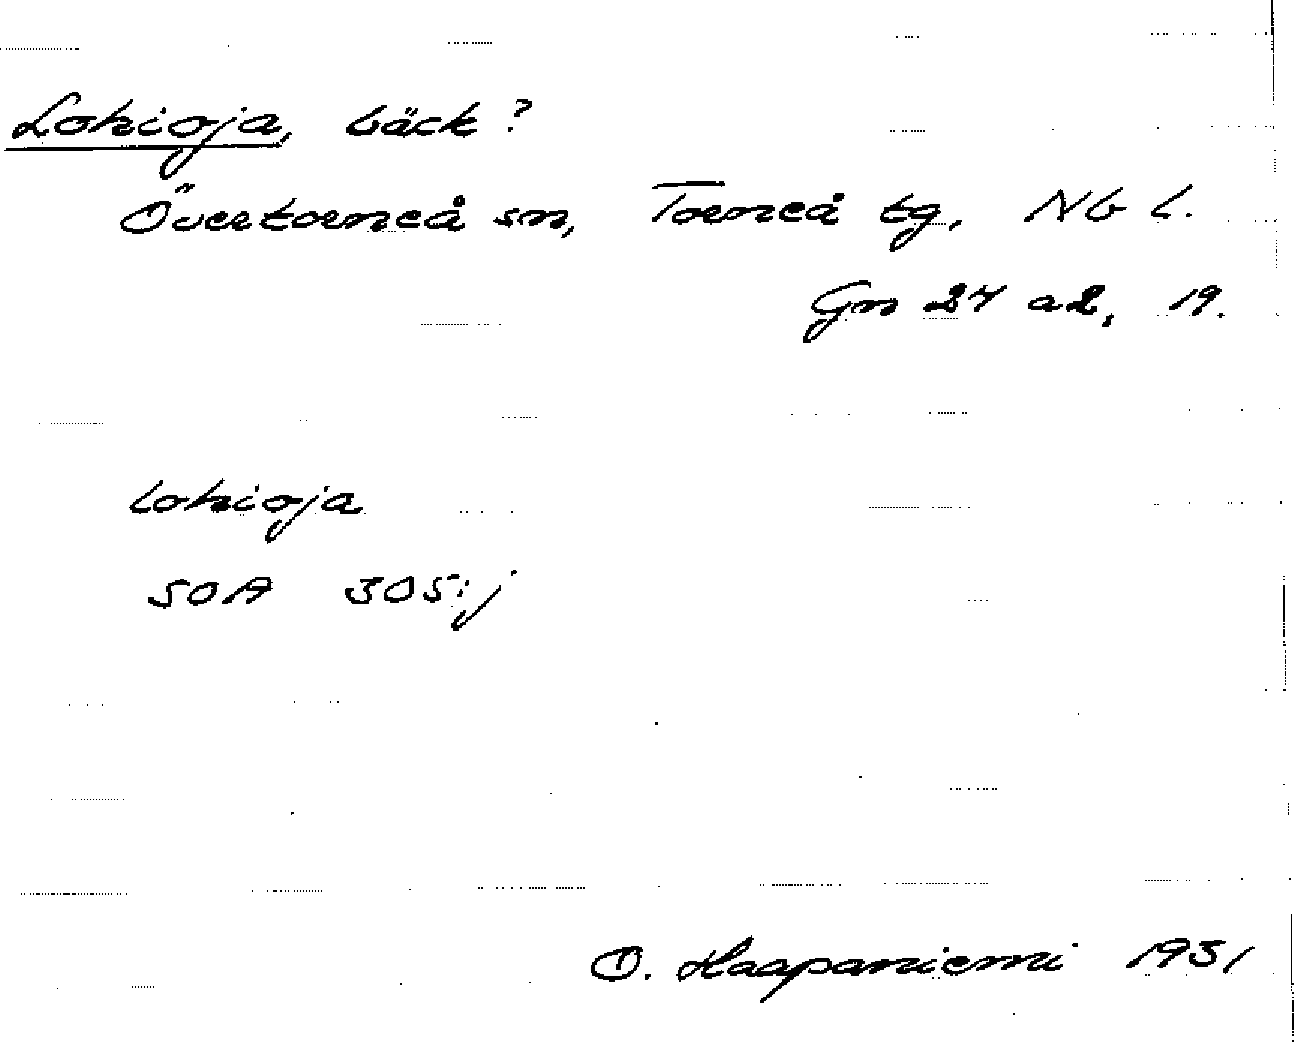 Lohioja, bäck?
Övertorneå sn, Torneå tg, Nb l.
Gn 24 a2, 19.
lohioja
SOA 305:j
O. Haapaniemi 1931